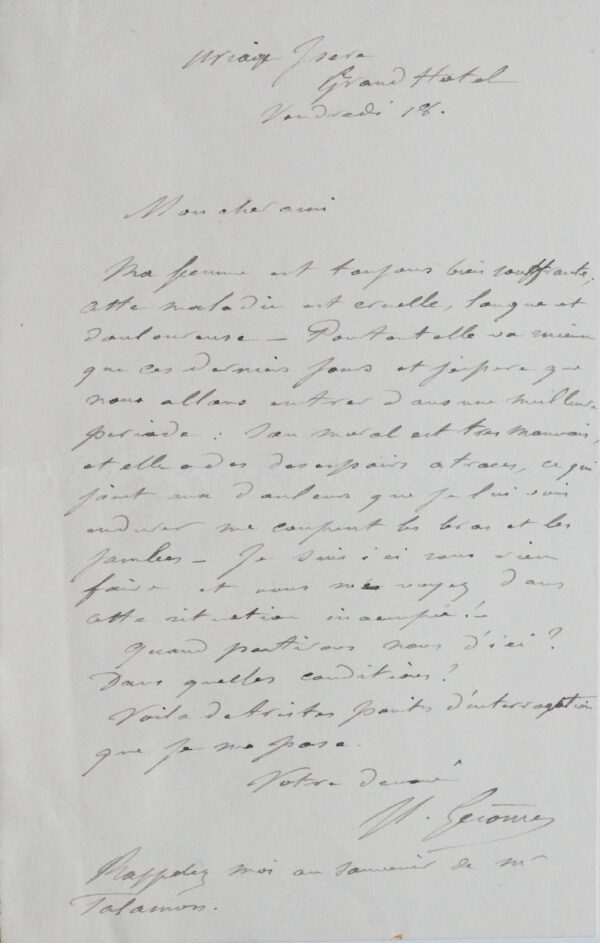 Uriage Isere
Grand Hotel
Vendredi 18.
Mon cher ami
Ma femme est toujours bien souffrante,
cette maladie est cruelle, longue et
douloureuse — Pourtant elle va mieux
que ces derniers jours et j'espere que
nous allons entrer dans une meilleure
periode : Son moral est tres mauvais,
et elle a des desespoirs atroces, ce qui
joint aux douleurs que je lui vois
endurer me coupent les bras et les
jambes — Je suis ici sans rien
faire et vous me voyez dans
cette situation inoccupée !—
Quand partirons nous d'ici ?
Dans quelles conditions ?
Voila de tristes points d'interrogation
que je me pose.
Votre devoué
Gerome
Rappelez moi au souvenir de mr
Talamon.